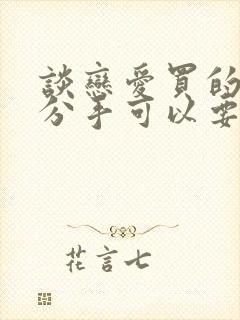 談戀愛買的
分手可以要
花言七